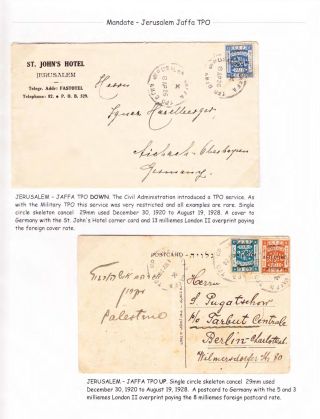 Mandate - Jerusalem Jaffa TPO
ST. JOHN'S HOTEL
JERUSALEM
Telegr. Addr: FASTOTEL
Telephone: 82. & P. O. B. 529.
Herrn
Germany
JERUSALEM – JAFFA TPO DOWN. The Civil Administration introduced a TPO service. As
with the Military TPO this service was very restricted and all examples are rare. Single
circle skeleton cancel 29mm used December 30, 1920 to August 19, 1928. A cover to
Germany with the St. John's Hotel corner card and 13 milliemes London II overprint paying
the foreign cover rate.
POSTCARD גלויה
Palestine
Herrn
S. Pugatschow
p/o Tarbut Centrale
Berlin-Charlottenb.
Wilmersdorferstr. 80
JERUSALEM – JAFFA TPO UP. Single circle skeleton cancel 29mm used
December 30, 1920 to August 19, 1928. A postcard to Germany with the 5 and 3
milliemes London II overprint paying the 8 milliemes foreign postcard rate.